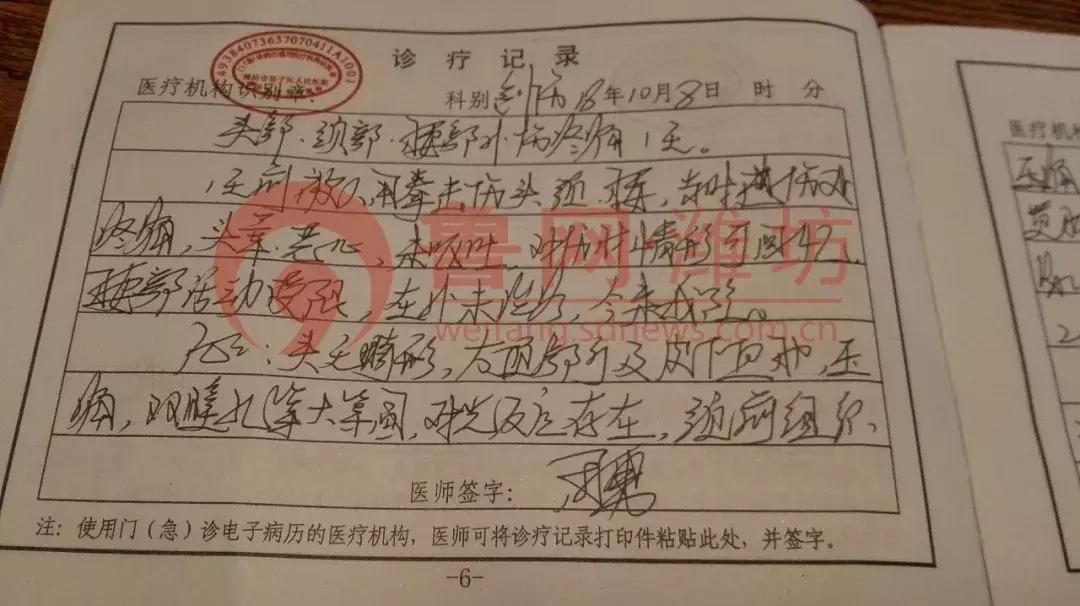 诊疗记录
4938407363707041​1A1001
医疗机构识别章: 科别 创伤 18年10月8日 时 分
头部、颈部、腰部外伤疼痛1天。
1天前被人用拳击伤头、颈、腰,当时感伤处
疼痛,头晕、恶心,未呕吐,对伤时情形可回忆,
腰部活动受限,在外未治疗,今来我院。
头无畸形,右顶部可及皮下血肿,压
痛,双瞳孔等大等圆,对光反应存在,颈前组织
医师签字:
注:使用门(急)诊电子病历的医疗机构,医师可将诊疗记录打印件粘贴此处,并签字。
-6-
鲁网潍坊
weifang.sdnews.com.cn
医疗机构
压痛